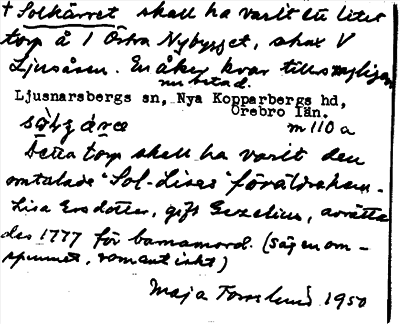 + Solkärret skall ha varit ett litet
torp å 1 Östra Nybygget, strax V
Ljusåsen. En åker kvar tills
nu betad.
Ljusnarsbergs sn, Nya Kopparbergs hd,
Örebro län.
m 110 a
Detta torp skall ha varit den
omtalade "Sol-Lisas" föräldrahem.
Lisa Ersdotter, gift Gezelius, avrätta-
des 1777 för barnamord. (Sägen om-
spunnet, romantiskt)
Maja Forslund 1950